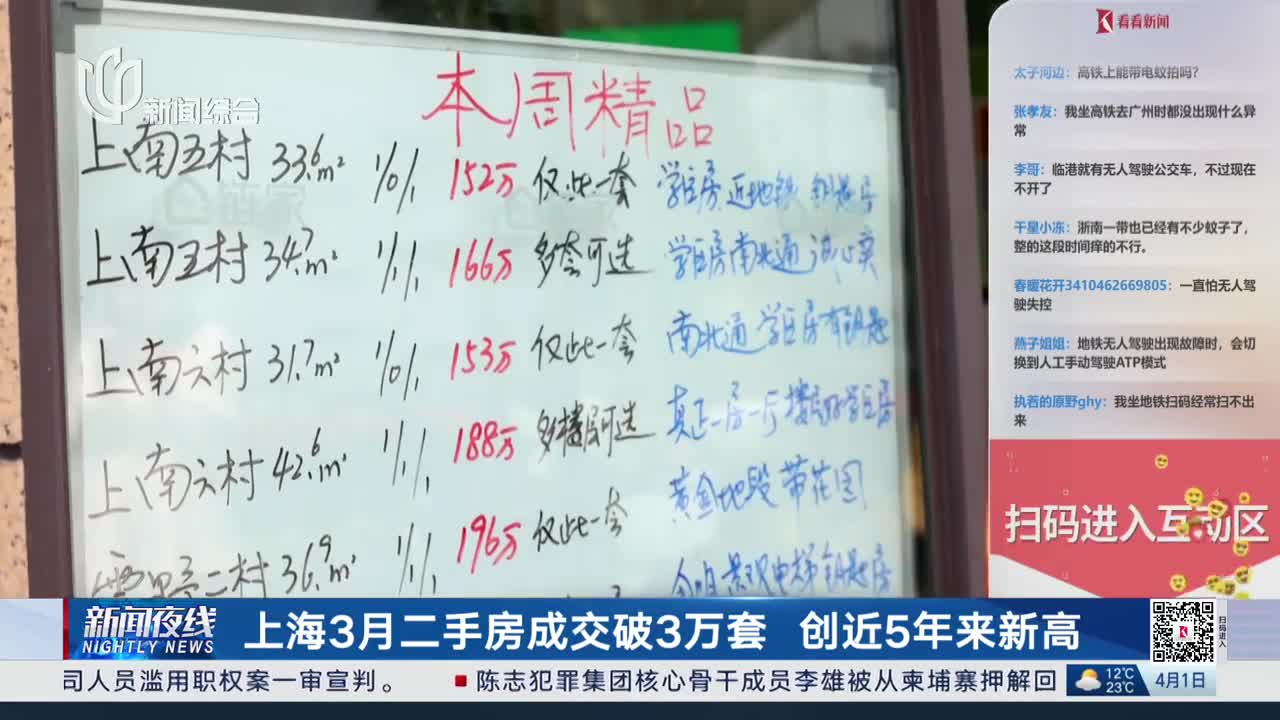 新闻综合
看看新闻
本周精品
上南五村 33.6m² 1/0/1 152万 仅此一套 学区房 近地铁 钥匙房
上南五村 34.7m² 1/1/1 166万 多套可选 学区房南北通 诚心卖
上南六村 31.7m² 1/0/1 153万 仅此一套 南北通 学区房有钥匙
上南六村 42.6m² 1/1/1 188万 多楼层可选 真正一房一厅 楼层好学区房
雪野二村 36.9m² 1/1/1 196万 仅此一套 黄金地段 带花园
链家
太子河边：高铁上能带电蚊拍吗？
张孝友：我坐高铁去广州时都没出现什么异
常
李哥：临港就有无人驾驶公交车，不过现在
不开了
干星小冻：浙南一带也已经有不少蚊子了，
整的这段时间痒的不行。
春暖花开3410462669805：一直怕无人驾
驶失控
燕子姐姐：地铁无人驾驶出现故障时，会切
换到人工手动驾驶ATP模式
执着的原野ghy：我坐地铁扫码经常扫不出
来
扫码进入互动区
新闻夜线
NIGHTLY NEWS
上海3月二手房成交破3万套 创近5年来新高
扫码进入
司人员滥用职权案一审宣判。 ■ 陈志犯罪集团核心骨干成员李雄被从柬埔寨押解回
12℃
23℃
4月1日